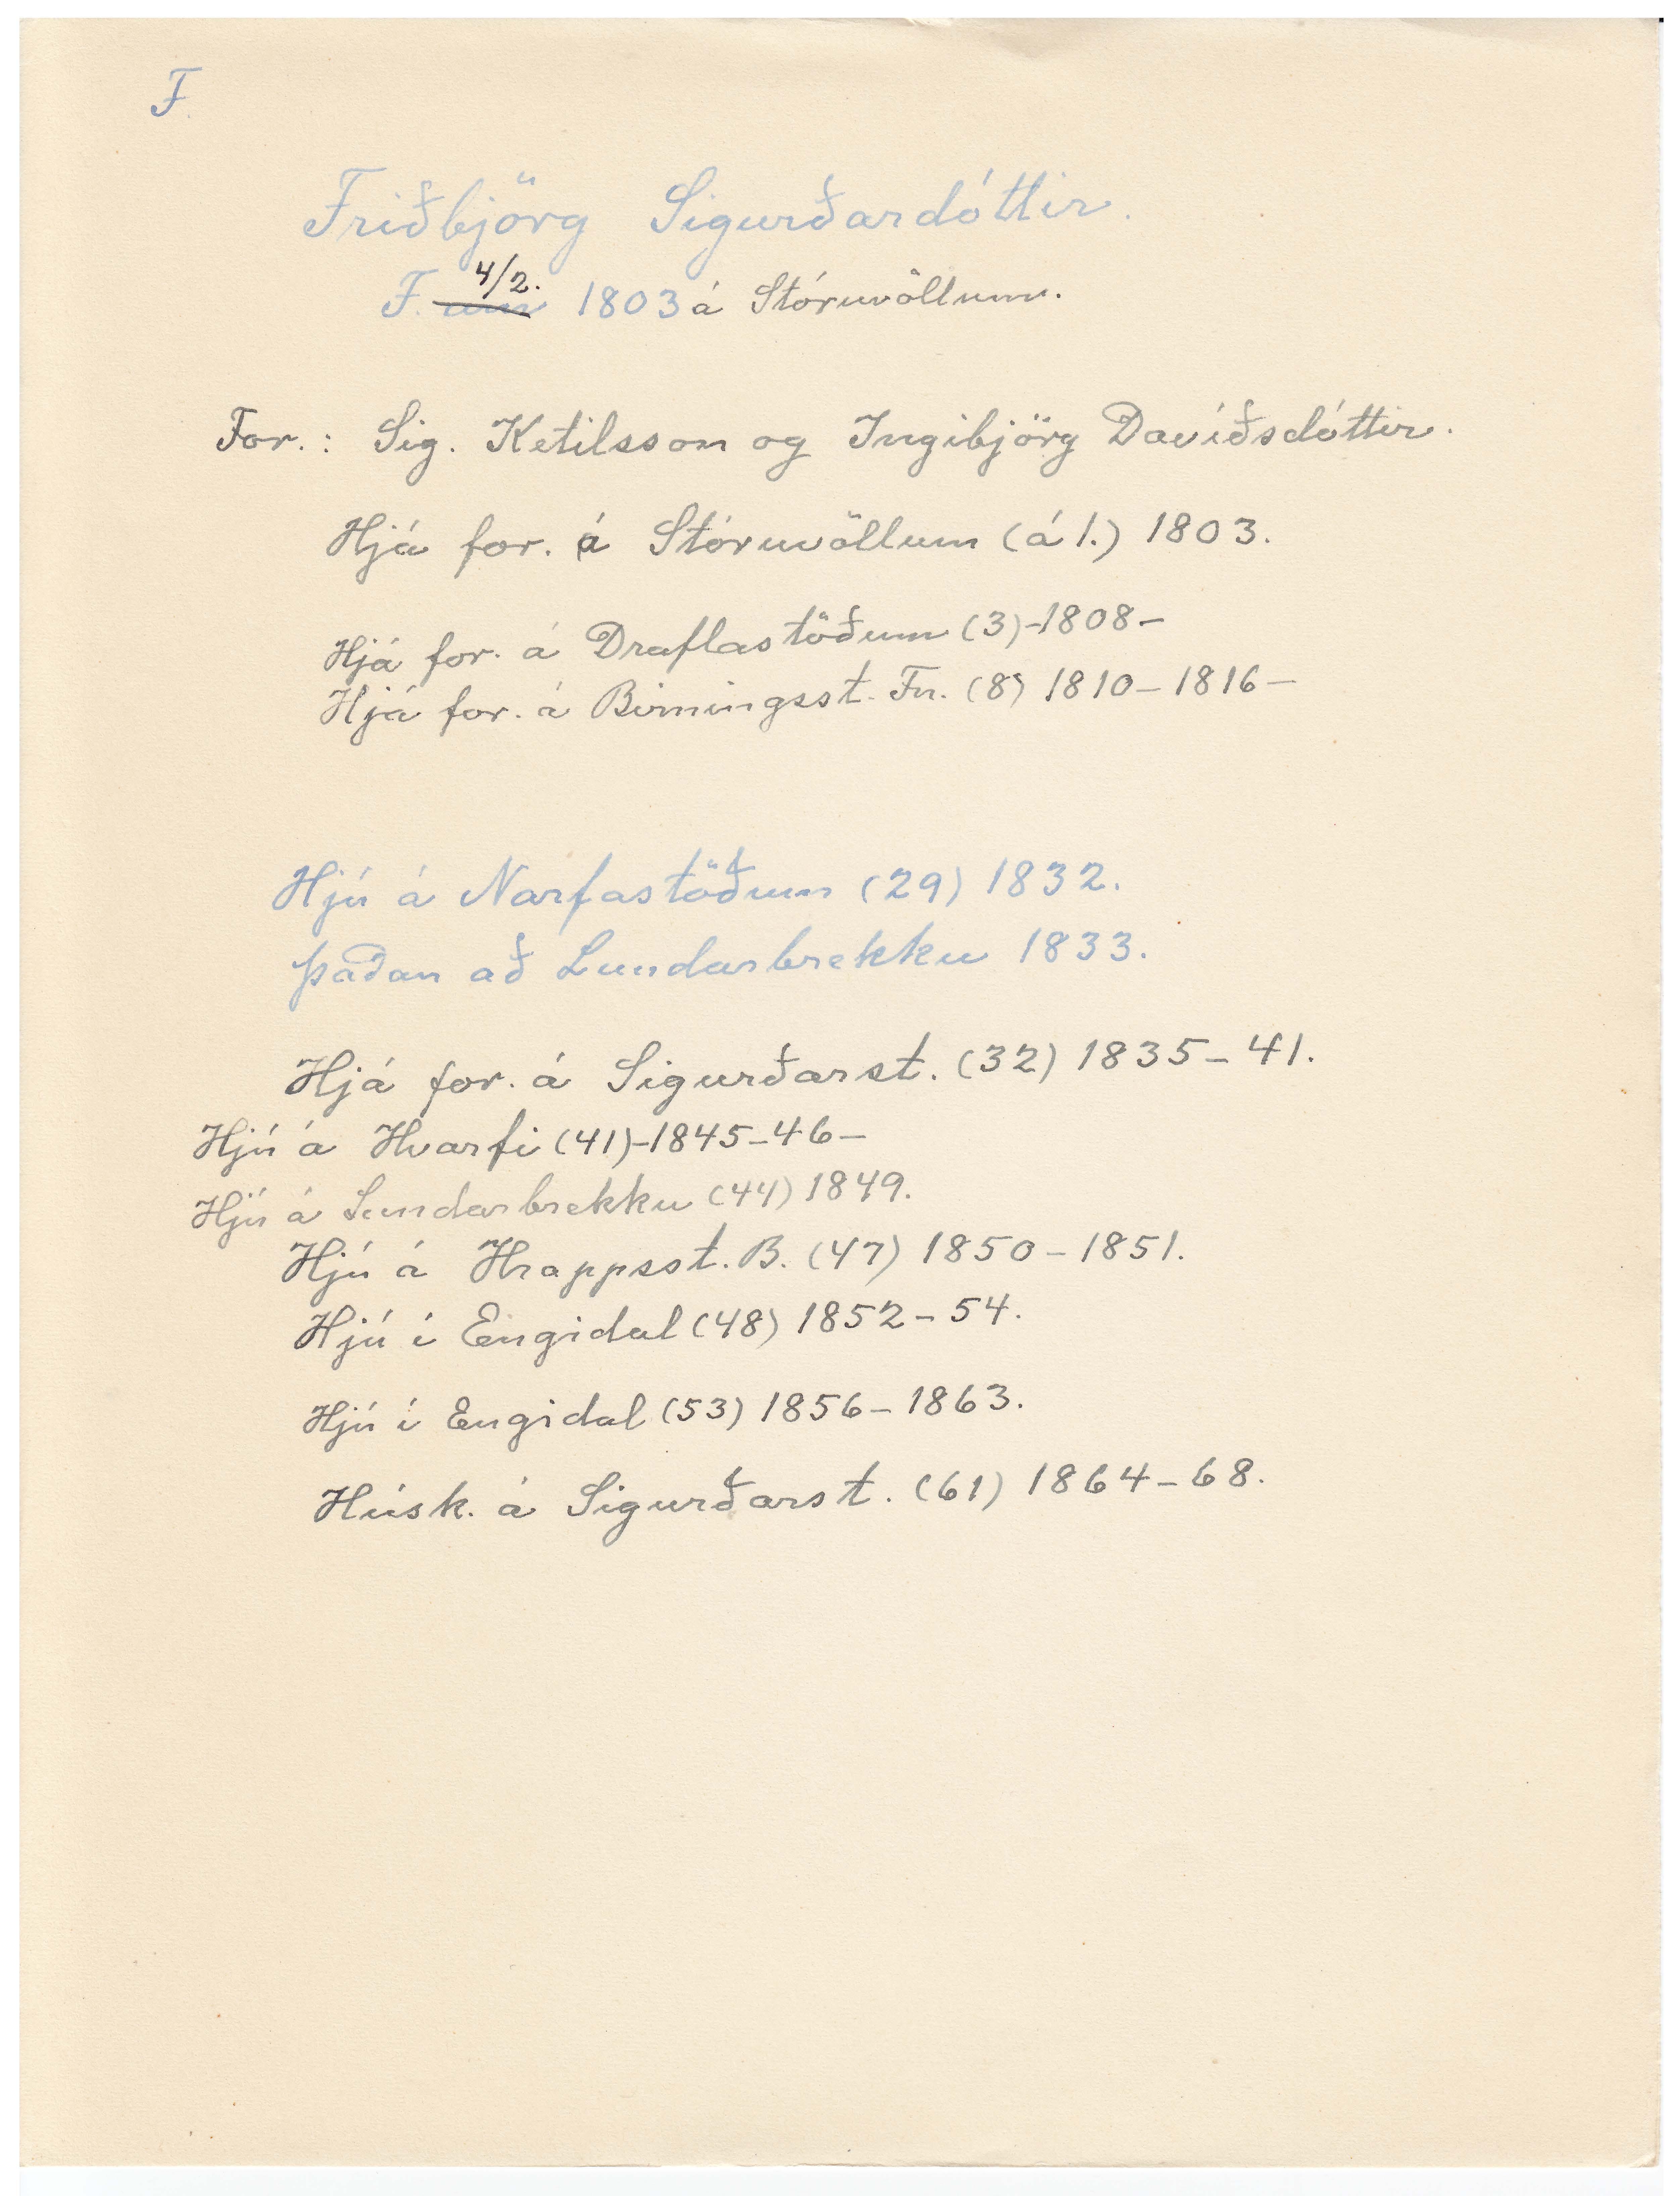 F.
Friðbjörg Sigurðardóttir.
4/2.
F. um 1803 á Stóruvöllum.
For.: Sig. Ketilsson og Ingibjörg Davíðsdóttir.
Hjá for. á Stóruvöllum (á 1.) 1803.
Hjá for. á Draflastöðum (3)-1808-
Hjá for. á Birningsst. Fn. (8) 1810-1816-
Hjú á Narfastöðum (29) 1832.
þaðan að Lundarbrekku 1833.
Hjá for. á Sigurðarst. (32) 1835-41.
Hjú á Hvarfi (41)-1845-46-
Hjú á Lundarbrekku (44) 1849.
Hjú á Hrappsst. B. (47) 1850-1851.
Hjú í Engidal (48) 1852-54.
Hjú í Engidal (53) 1856-1863.
Húsk. á Sigurðarst. (61) 1864-68.